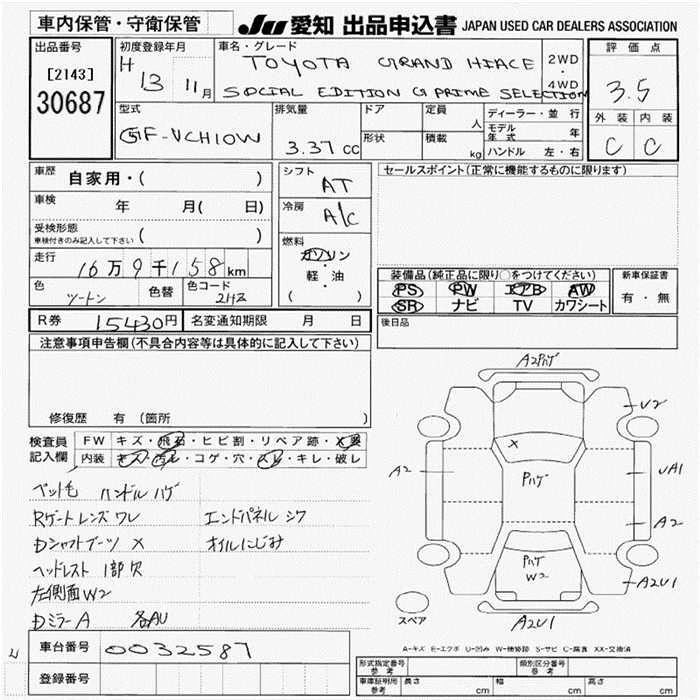 車内保管・守衛保管 JU 愛知 出品申込書 JAPAN USED CAR DEALERS ASSOCIATION
出品番号
[2143]
30687
初度登録年月
H 13 11月
車名・グレード
TOYOTA GRAND HIACE
SOCIAL EDITION G PRIME SELECTION
2WD
・
4WD
評価点
3.5
外装 内装
C C
型式
GF-VCH10W
排気量
3.37cc
ドア
形状
定員
人
積載
kg
ディーラー・並行
モデル年式 年
ハンドル 左・右
車歴 自家用・( )
車検 年 月( 日)
受検形態
車検付きのみ記入して下さい ( )
走行 16万9千158km
色 ツートン 色替 色コード 2HZ
シフト
AT
冷房
A/C
燃料
ガソリン
・
軽・油
( )
セールスポイント(正常に機能するものに限ります)
装備品(純正品に限り○をつけてください)
PS PW エアB AW
SR ナビ TV カワシート
新車保証書
有・無
後日品
R券 15430円 名変通知期限 月 日
注意事項申告欄(不具合内容等は具体的に記入して下さい)
修復歴 有(箇所 )
検査員記入欄
FW キズ・飛石・ヒビ割・リペア跡・X要
内装 キズ・汚レ・コゲ・穴・スレ・キレ・破レ
ペット毛 ハンドルハゲ
Rゲートレンズワレ エンドパネルシワ
Dシャフトブーツ X オイルにじみ
ヘッドレスト 1部欠
左側面W2
DミラーA 各AU
A2Pハゲ
V2
X
A2
Pハゲ
UA1
A2
Pハゲ
W2
A2U1
スペア
A2U1
A-キズ E-エクボ U-凹み W-補修跡 S-サビ C-腐食 XX-交換済
車台番号 0032587
登録番号
形式指定番号
参考
類別区分番号
参考
車庫証明用
参考
長さ cm 幅 cm 高さ cm